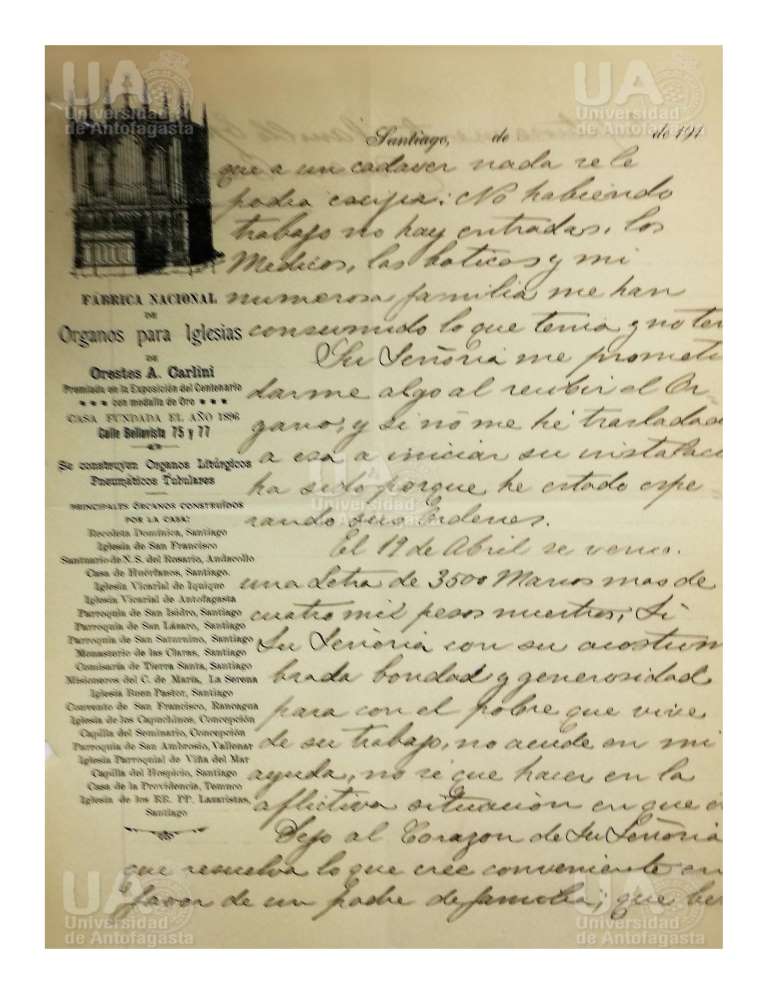 UA
Universidad
de Antofagasta
UA
Universidad
de Antofagasta
Santiago, de de 191
que a un cadaver nada se le
podia escijia: No habiendo
trabajo no hay entradas, los
Medicos, las boticas y mi
numerosa familia me han
consumido lo que tenia y no ten
Su Señoria me prometi
darme algo al recibir el Or-
gano, y si nó me hé trasladado
a esa a iniciar su instalaci
ha sido porque he estado espe
rando sus Ordenes.
El 19 de Abril se vence
una Letra de 3500 Marcos mas de
cuatro mil pesos nuestros; Si
Su Señoria con su acostum
brada bondad y generosidad
para con el pobre que vive
de su trabajo, no acude en mi
ayuda, no sé que hacer en la
aflictiva situación en que
Dejo al Corazon de Su Señoria
que resuelva lo que cree conveniente en
favor de un padre de familia; que
FÁBRICA NACIONAL
DE
Organos para Iglesias
DE
Orestes A. Carlini
Premiada en la Exposición del Centenario
con medalla de Oro
CASA FUNDADA EL AÑO 1896
Calle Bellavista 75 y 77
Se construyen Organos Litúrgicos
Pneumáticos Tubulares
PRINCIPALES ÓRGANOS CONSTRUÍDOS
POR LA CASA:
Recoleta Dominica, Santiago
Iglesia de San Francisco
Santuario de N.S. del Rosario, Andacollo
Casa de Huérfanos, Santiago.
Iglesia Vicarial de Iquique
Iglesia Vicarial de Antofagasta
Parroquia de San Isidro, Santiago
Parroquia de San Lázaro, Santiago
Parroquia de San Saturnino, Santiago
Monasterio de las Claras, Santiago
Comisaría de Tierra Santa, Santiago
Misioneros del C. de María, La Serena
Iglesia Buen Pastor, Santiago
Convento de San Francisco, Rancagua
Iglesia de los Capuchinos, Concepción
Capilla del Seminario, Concepción
Parroquia de San Ambrosio, Vallenar
Iglesia Parroquial de Viña del Mar
Capilla del Hospicio, Santiago
Casa de la Providencia, Temuco
Iglesia de los RR. PP. Lazaristas,
Santiago
UA
Universidad
de Antofagasta
UA
Universidad
de Antofagasta
UA
Universidad
de Antofagasta